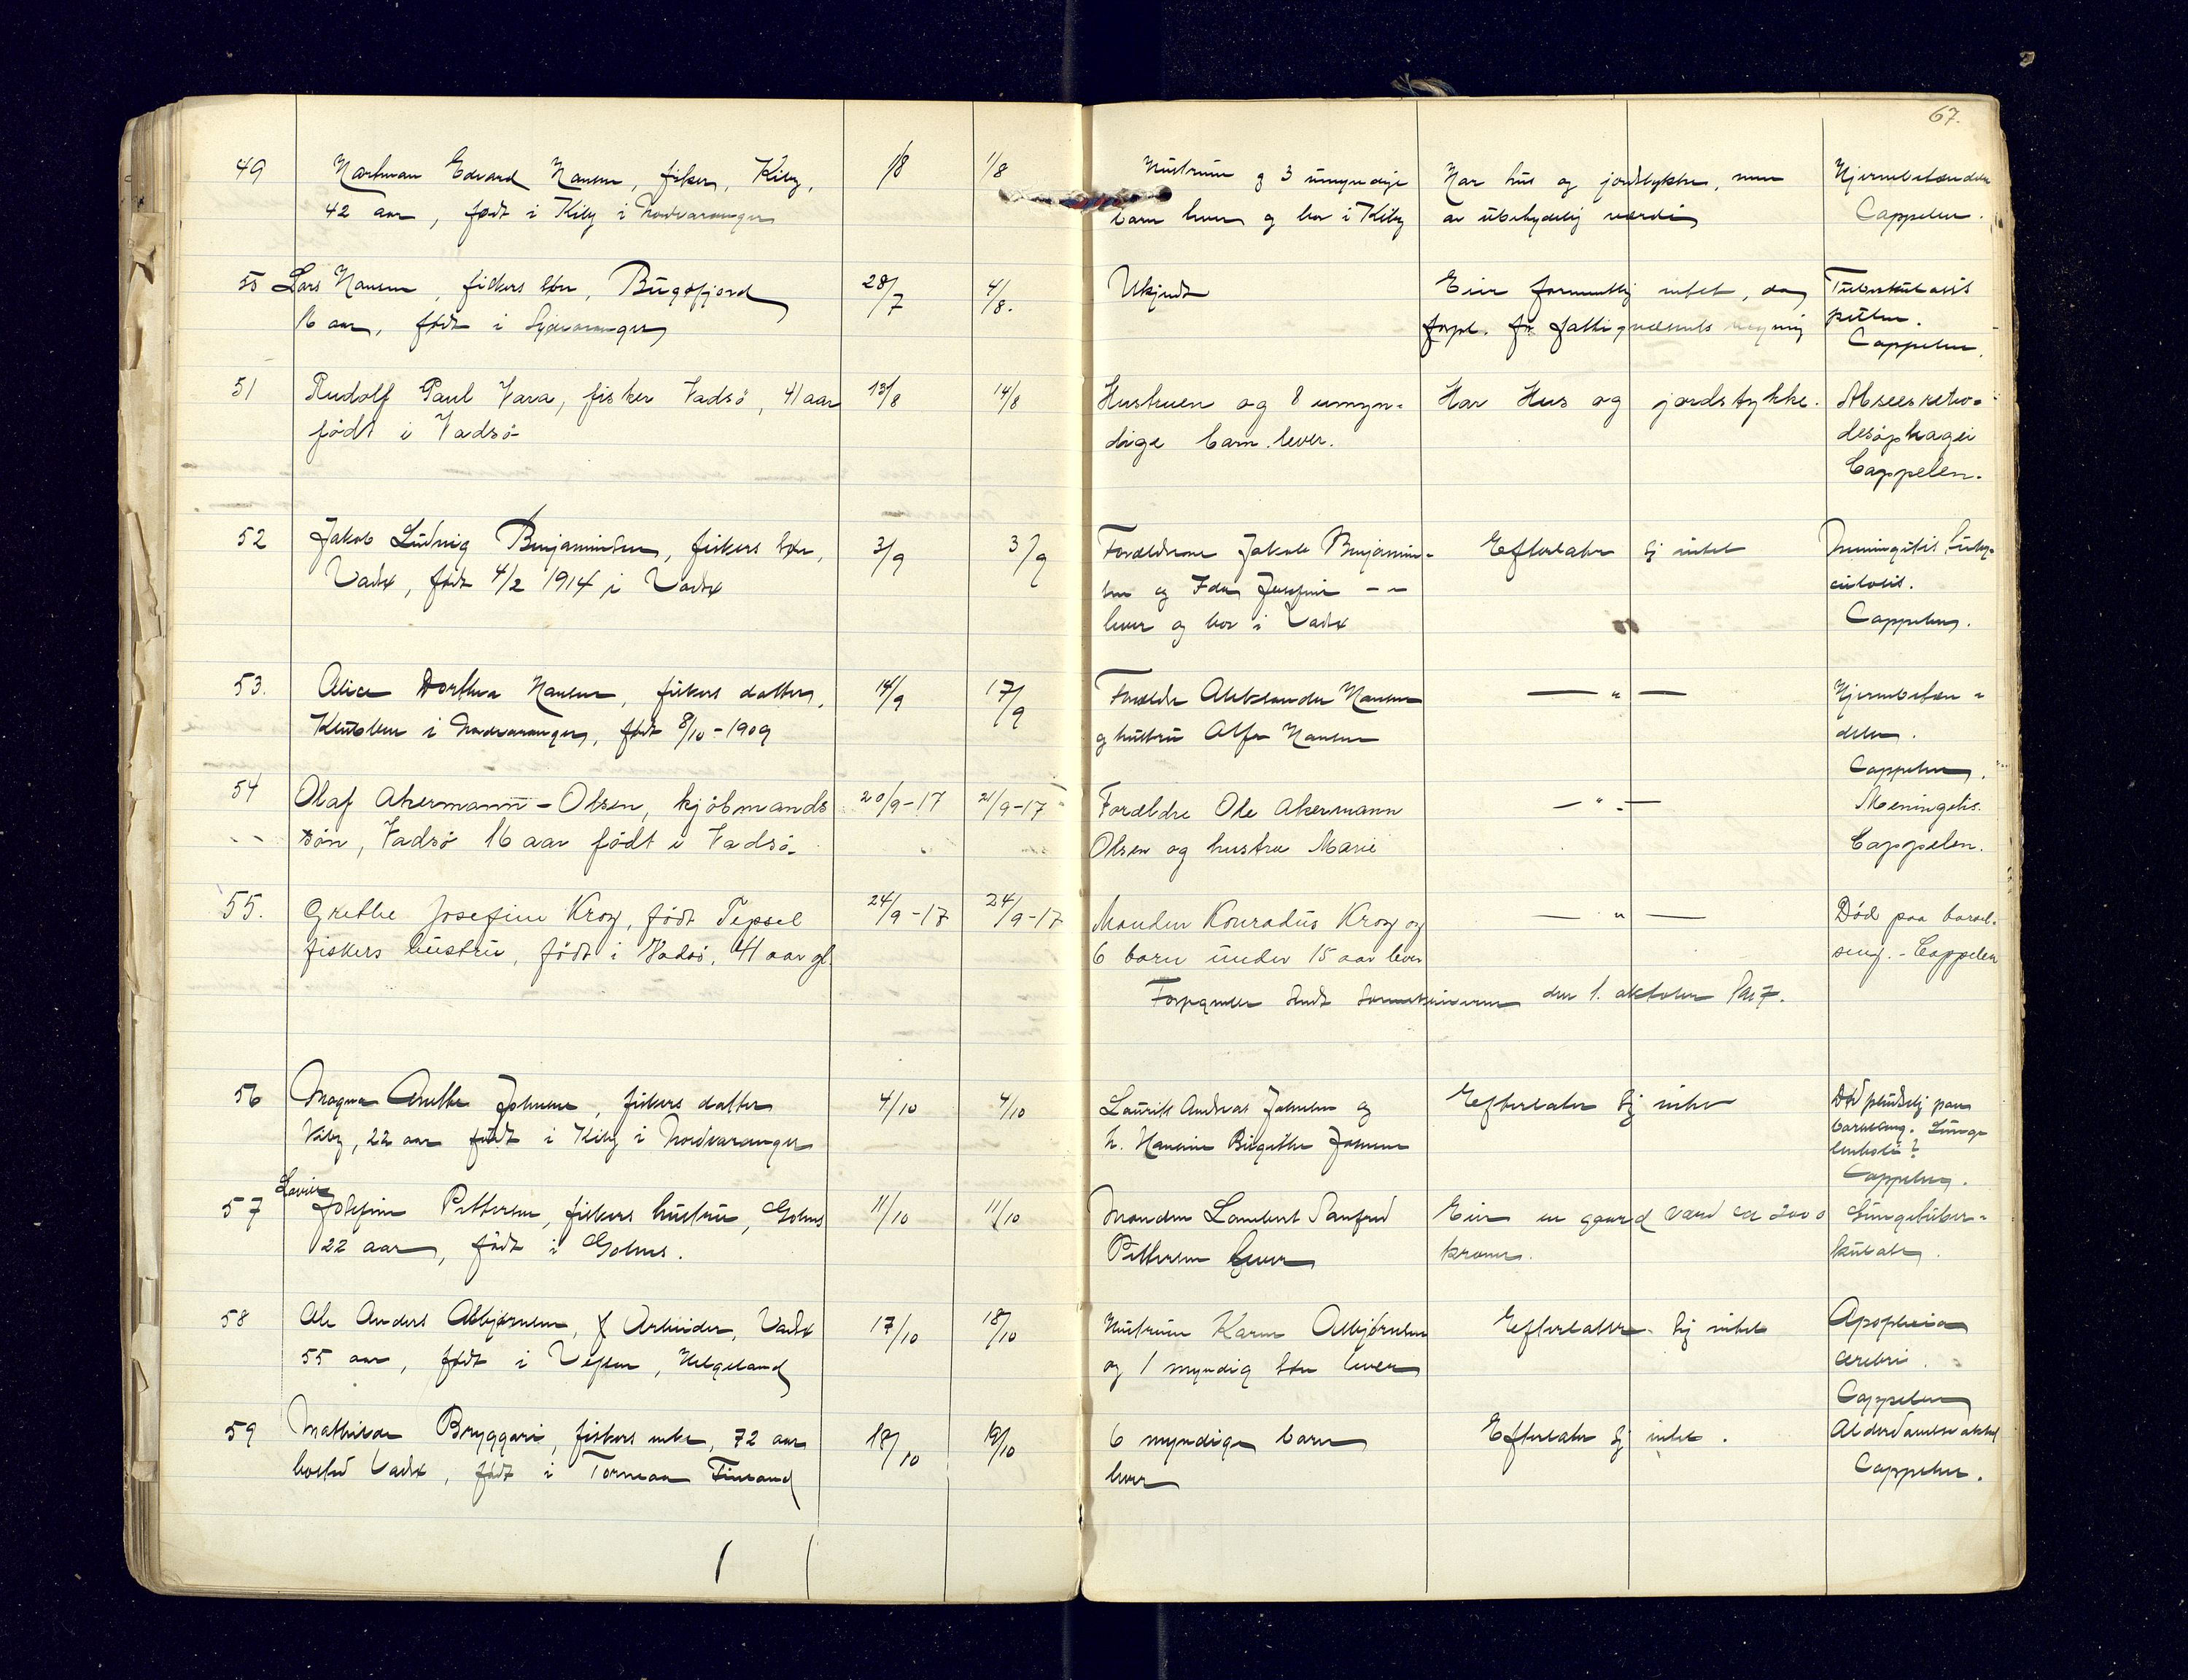 67.
49 Hartman Edvard Hansen, fisker, Kiby, 1/8 1/8 Hustruen og 3 umyndige Har hus og jordstykke, men Hjernebetændelse
42 aar, født i Kiby i Nordvaranger barn lever og bor i Kiby av ubetydelig værdi Cappelen.
55 Lars Hansen, fiskers søn, Bugøfjord 28/7 4/8. Ukjendt Eier formentlig intet, da Tuberkulosis
16 aar, født i Sydvaranger forpl. for fattigvæsenets regning Cappelen.
51 Rudolf Paul Vara, fisker Vadsö, 41 aar 13/8 14/8 Hustruen og 8 umyn- Har Hus og jordstykke.
födt i Vadsö dige barn lever.
Cappelen.
52 Jakob Ludvig Benjaminsen, fiskers søn, 3/9 3/9 Forældrene Jakob Benjamin- Efterlater sig intet Meningitis tuber-
Vadsø, født 4/2 1914 i Vadsø sen og Ida Josefine - - culosis.
lever og bor i Vadsø Cappelen.
53. Alice Dorthea Hansen, fiskers datter, 14/9 17/9 Forældre Aleksander Hansen — " — Hjernebetæn-
Klubben i Nordvaranger, født 8/10 - 1909 og hustru Alfa Hansen delse.
Cappelen.
54 Olaf Akermann - Olsen, kjöbmands 20/9-17 21/9-17 Forældre Ole Akermann — " — Meningitis.
sön, Vadsö 16 aar födt i Vadsö. Olsen og hustru Marie Cappelen.
55. Grethe Josefine Krog, födt Tepsel 24/9-17 24/9-17 Manden Konradus Krog og — " — Död paa barsel-
fiskers hustru, födt i Vadsö, 41 aar gl. 6 barn under 15 aar lever seng. - Cappelen
den 1. oktober 1917.
56 Magna Anethe Johnsen, fiskers datter 4/10 4/10 Laurits Andreas Johnsen og Efterlater sig intet Død pludselig paa
Kiby, 22 aar født i Kiby i Nordvaranger h. Hansine Birgithe Johnsen barselseng. Lunge
Cappelen.
57 Josefine Pettersen, fiskers hustru, Golnes 11/10 11/10 Manden Lambert Sanfred Eier en gaard værd ca 2000 Lungetuber-
22 aar, født i Golnes. Pettersen lever kroner. kulose.
58 Ole Anders Asbjørnsen, f Arbeider, Vadsø 17/10 18/10 Hustruen Karen Asbjørnsen Efterlater sig intet Apoplexia
55 aar, født i Vefsen, Helgeland og 1 myndig søn lever cerebri.
Cappelen
59 Mathilde Bryggari, fiskers enke, 72 aar 18/10 19/10 6 myndige barn Efterlater sig intet. Alderdomssvakhet
bosted Vadsø, født i Torneaa Finland lever Cappelen.